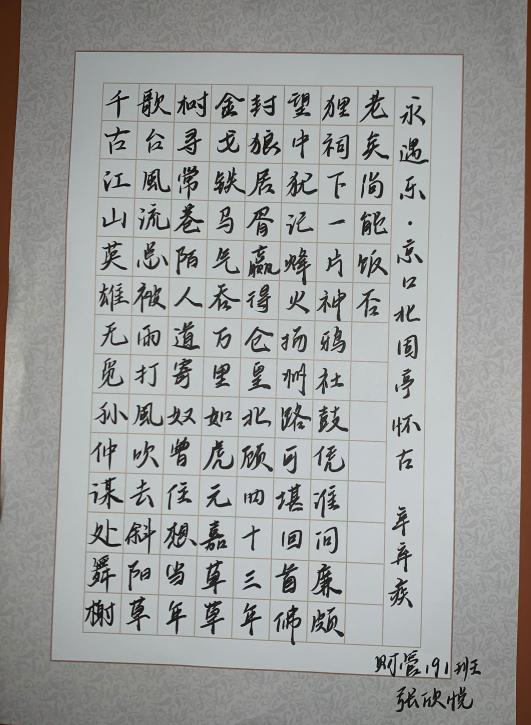 永遇乐·京口北固亭怀古 辛弃疾
千古江山英雄无觅孙仲谋处舞榭
歌台風流总被雨打風吹去斜阳草
树寻常巷陌人道寄奴曾住想当年
金戈铁马气吞万里如虎元嘉草草
封狼居胥赢得仓皇北顾四十三年
望中犹记烽火扬州路可堪回首佛
狸祠下一片神鸦社鼓凭谁问廉颇
老矣尚能饭否
财管191班
张欣悦